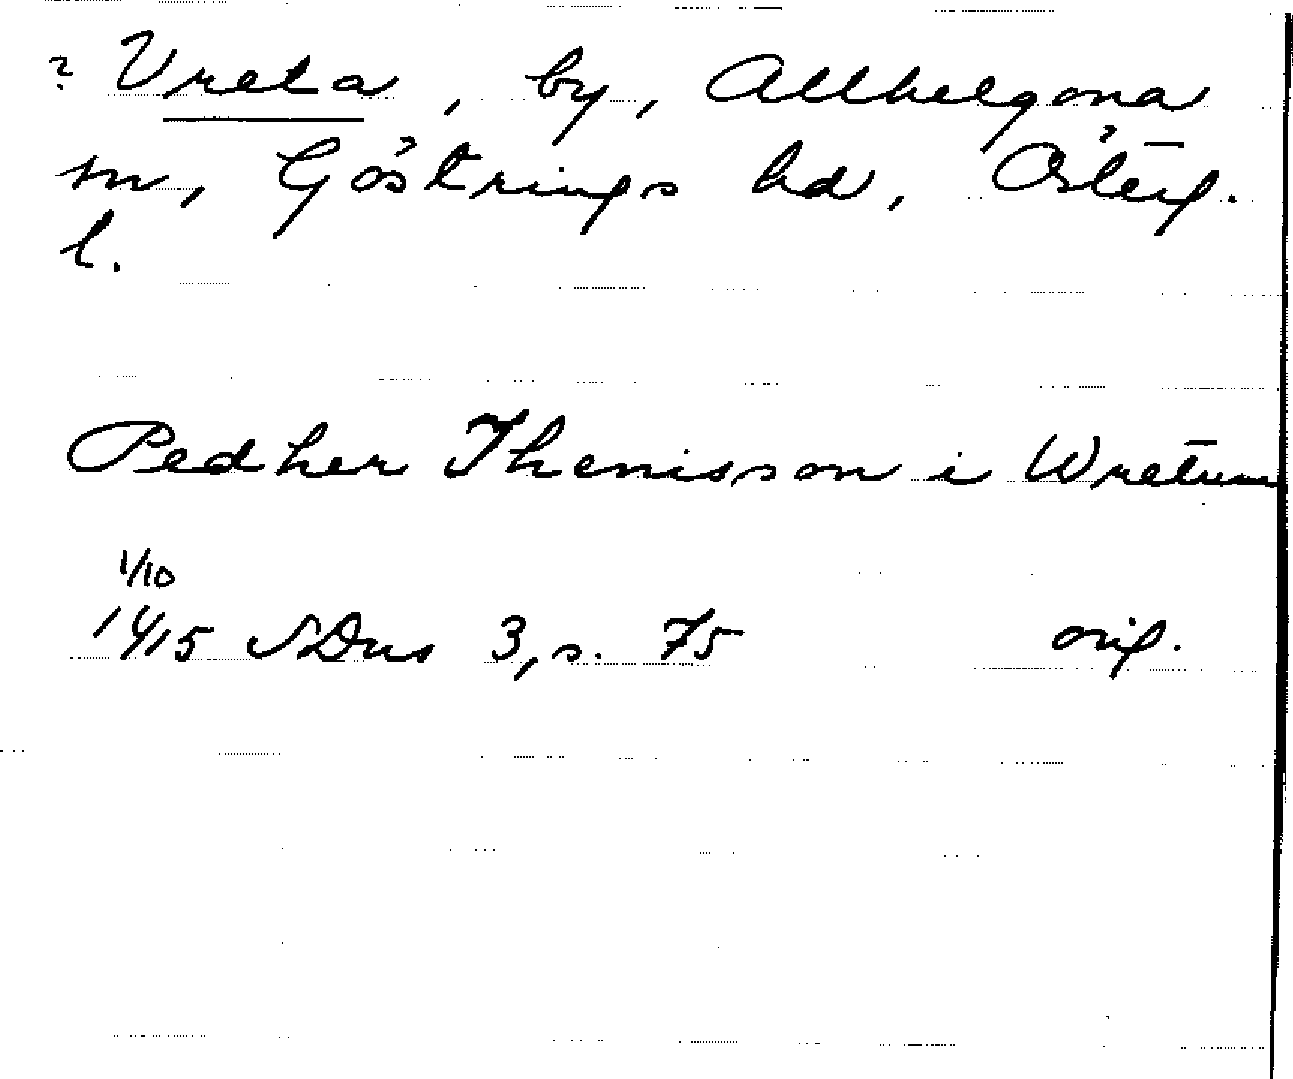 ? Vreta, by, Allhelgona
sn, Göstrings hd, Österg.
l.
Pedher Thenisson i Wretum
1/10
1415 SDns 3, s. 75 orig.